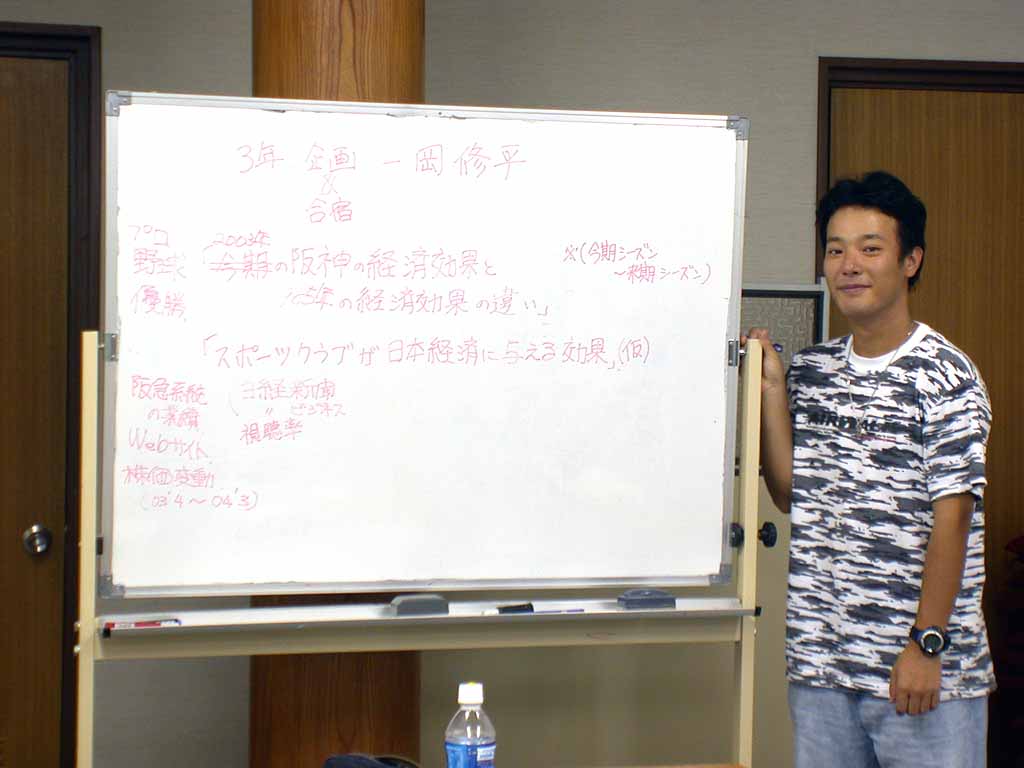 3年 企画 一岡修平
&
合宿
プロ
野球
優勝
2003年
「今期の阪神の経済効果と
の経済効果の違い」
※(今期シーズン
〜来期シーズン)
「スポーツクラブが日本経済に与える効果」(仮)
阪急系統
の業績
Webサイト
株価変動
(03'4〜04'3)
日経新聞
〃 ビジネス
視聴率